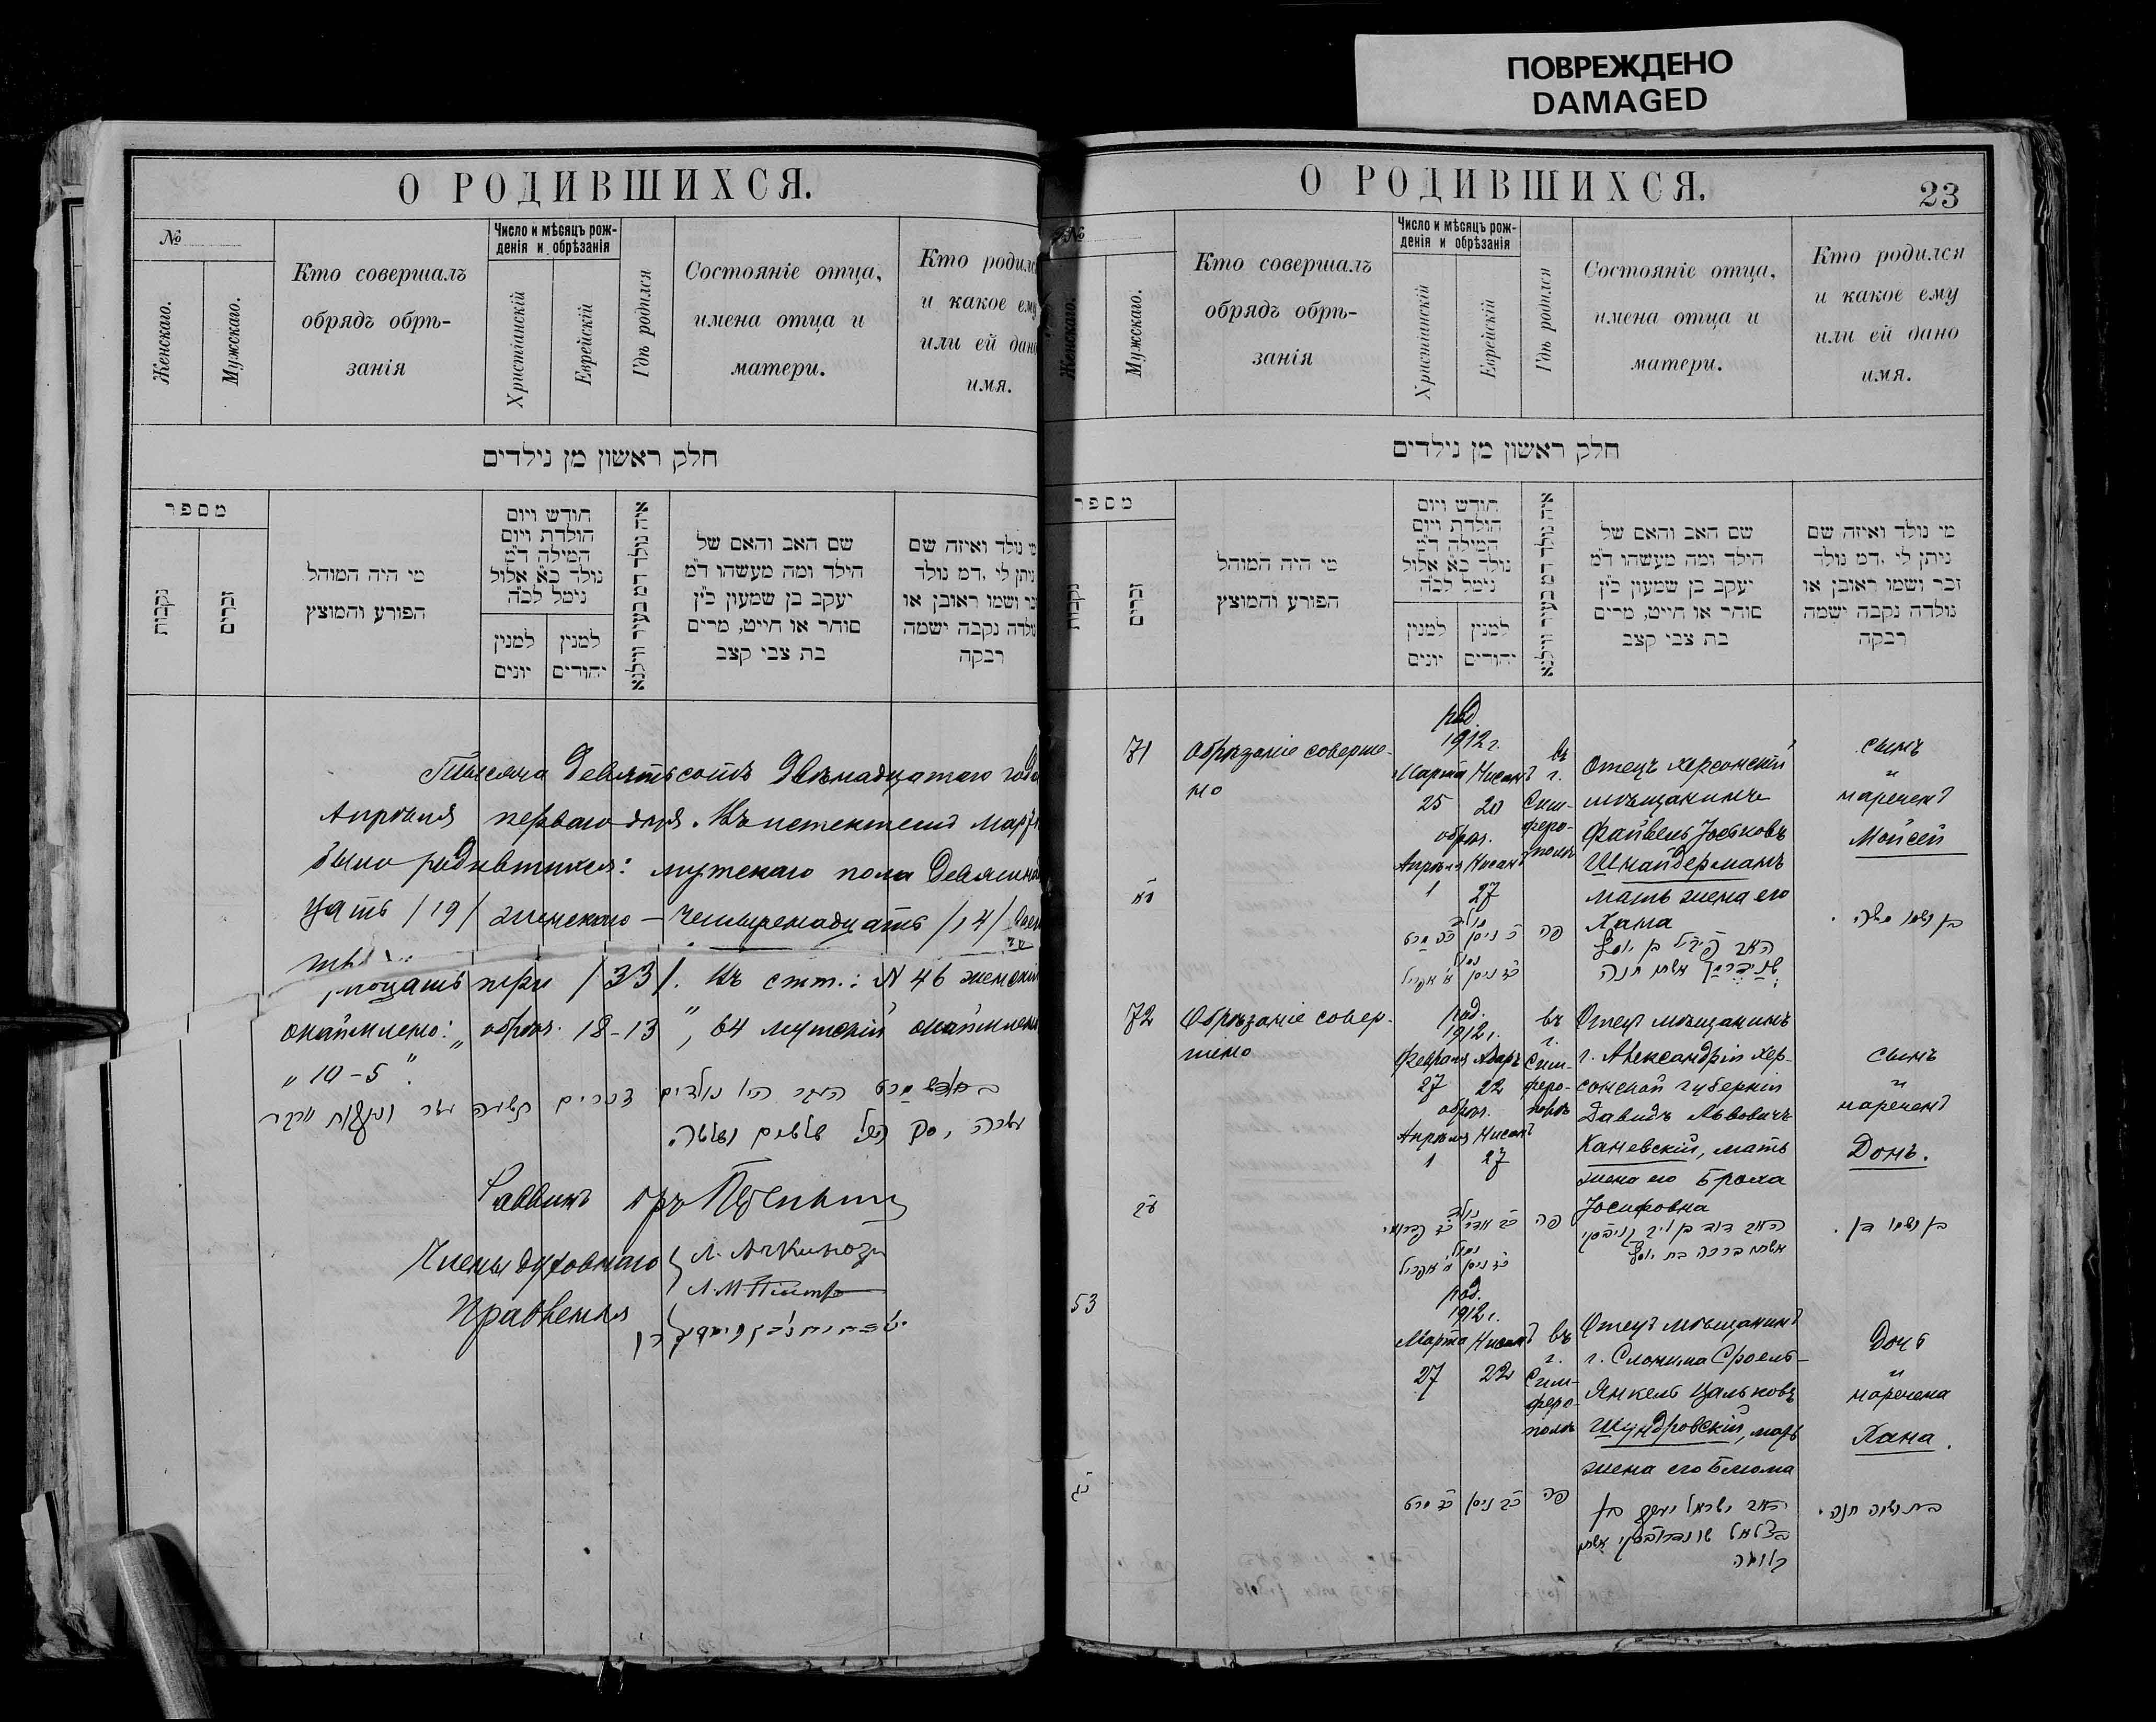 ПОВРЕЖДЕНО
DAMAGED
О РОДИВШИХСЯ.
№
Женскаго.
Мужскаго.
Кто совершалъ
обрядъ обрѣ-
занія
Число и мѣсяцъ рож-
денія и обрѣзанія
Христіанскій
Еврейскій
Гдѣ родился
Состояніе отца,
имена отца и
матери.
Кто родилс
и какое ему
или ей дано
имя.
חלק ראשון מן נילדים
מספר
נקבות
זכרים
מי היה המוהל
הפורע והמוצץ
חודש ויום
הולדת ויום
המילה ד״מ
נולד כ״א אלול
נימל לכ״ה
למנין
יונים
למנין
יהודים
איה נולד דמ בעיר ווילנא
שם האב והאם של
הילד ומה מעשהו ד״מ
יעקב בן שמעון כ״ץ
סוחר או חייט, מרים
בת צבי קצב
מי נולד ואיזה שם
ניתן לי .דמ נולד
זכר ושמו ראובן או
נולדה נקבה ישמה
רבקה
Тысяча девятьсотъ двѣнадцатаго года
Апрѣля перваго дня. Въ истекшемъ мартѣ
было родившихся: мужскаго пола девятнад
цать /19/ женскаго – четырнадцать /14/
тридцать три /33/. Къ стт.: № 46 женскій
" 64 мужскій
" 10-5".
שלשים ושלשה.
Раввинъ
Члены духовнаго
Правленія
О РОДИВШИХСЯ.
23
№
Женскаго.
Мужскаго.
Кто совершалъ
обрядъ обрѣ-
занія
Число и мѣсяцъ рож-
денія и обрѣзанія
Христіанскій
Еврейскій
Гдѣ родился
Состояніе отца,
имена отца и
матери.
Кто родился
и какое ему
или ей дано
имя.
חלק ראשון מן נילדים
מספר
נקבות
זכרים
מי היה המוהל
הפורע והמוצץ
חודש ויום
הולדת ויום
המילה ד״מ
נולד כ״א אלול
נימל לכ״ה
למנין
יונים
למנין
יהודים
איה נולד דמ בעיר ווילנא
שם האב והאם של
הילד ומה מעשהו ד״מ
יעקב בן שמעון כ״ץ
סוחר או חייט, מרים
בת צבי קצב
מי נולד ואיזה שם
ניתן לי .דמ נולד
זכר ושמו ראובן או
נולדה נקבה ישמה
רבקה
71
Обрѣзаніе соверше-
но
род.
1912 г.
Марта Нисанъ
25 20
обрѣз.
Апрѣля Нисанъ
1 27
въ
г.
Сим-
феро-
полѣ
Отецъ херсонскій
мѣщанинъ
Файвель Іоськовъ
Шнайдерманъ
мать жена его
Хана
сынъ
и
нареченъ
Мойсей
נולד
כ׳ ניסן
פה
האב פייויל בן יוסף
שניידרמן אשתו חנה
בן ושמו משה.
72
Обрѣзаніе совер-
шено
род.
1912 г.
Февраля Адаръ
27 22
обрѣз.
Апрѣля Нисанъ
1 27
въ
г.
Сим-
феро-
полѣ
Отецъ мѣщанинъ
г. Александріи хер-
сонской губерніи
Давидъ Львовичъ
Каневскій, мать
жена его Броха
Іосифовна
сынъ
и
нареченъ
Донъ.
עב
פה
אשתו ברכה בת יוסף
בן ושמו דן.
53
род.
1912 г.
Марта Нисанъ
27 22
въ
г.
Сим-
феро-
полѣ
Отецъ мѣщанинъ
г. Слонима Сроель-
Янкель Цальковъ
Шундровскій, мать
жена его Блюма
Дочь
и
наречена
Хана.
נג
כב ניסן
פה
האב ישראל יעקב בן
בצלאל שונדרובסקי אשתו
בלומה
בת ושמה חנה.